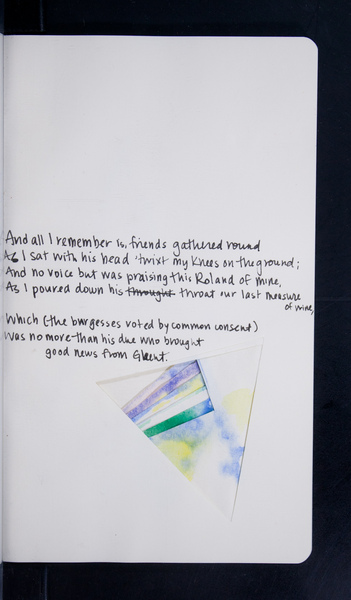 And all I remember is, friends gathered round
As I sat with his head 'twixt my knees on the ground;
And no voice but was praising this Roland of mine,
As I poured down his thought throat our last measure
of wine,
Which (the burgesses voted by common consent)
Was no more than his due who brought
good news from Ghent.